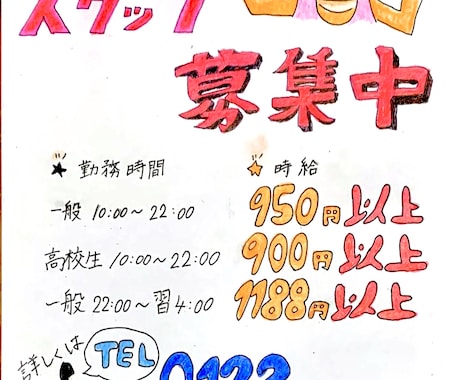 スタッフ
募集中
勤務時間 時給
一般 10:00~22:00 950円以上
高校生 10:00~22:00 900円以上
一般 22:00~習4:00 1188円以上
詳しくは TEL